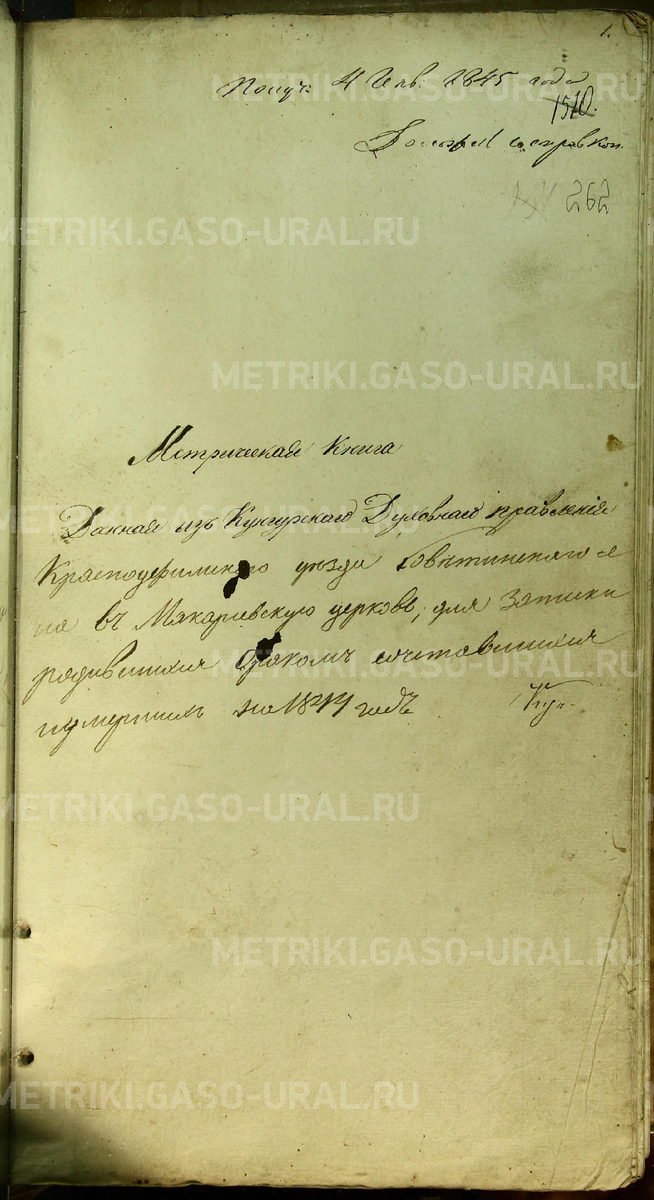 1.
Получ. 4 Генв. 1845 года
1510.
262
Метрическая Книга
Данная изъ Кунгурскаго Духовнаго правленія
Красноуфимскаго уезда
на въ Макарьевскую церковь, для записки
родившихся бракомъ сочетавшихся
и умершихъ на 1844 годъ
METRIKI.GASO-URAL.RU
METRIKI.GASO-URAL.RU
METRIKI.GASO-URAL.RU
METRIKI.GASO-URAL.RU
METRIKI.GASO-URAL.RU
METRIKI.GASO-URAL.RU
METRIKI.GASO-URAL.RU
METRIKI.GASO-URAL.RU